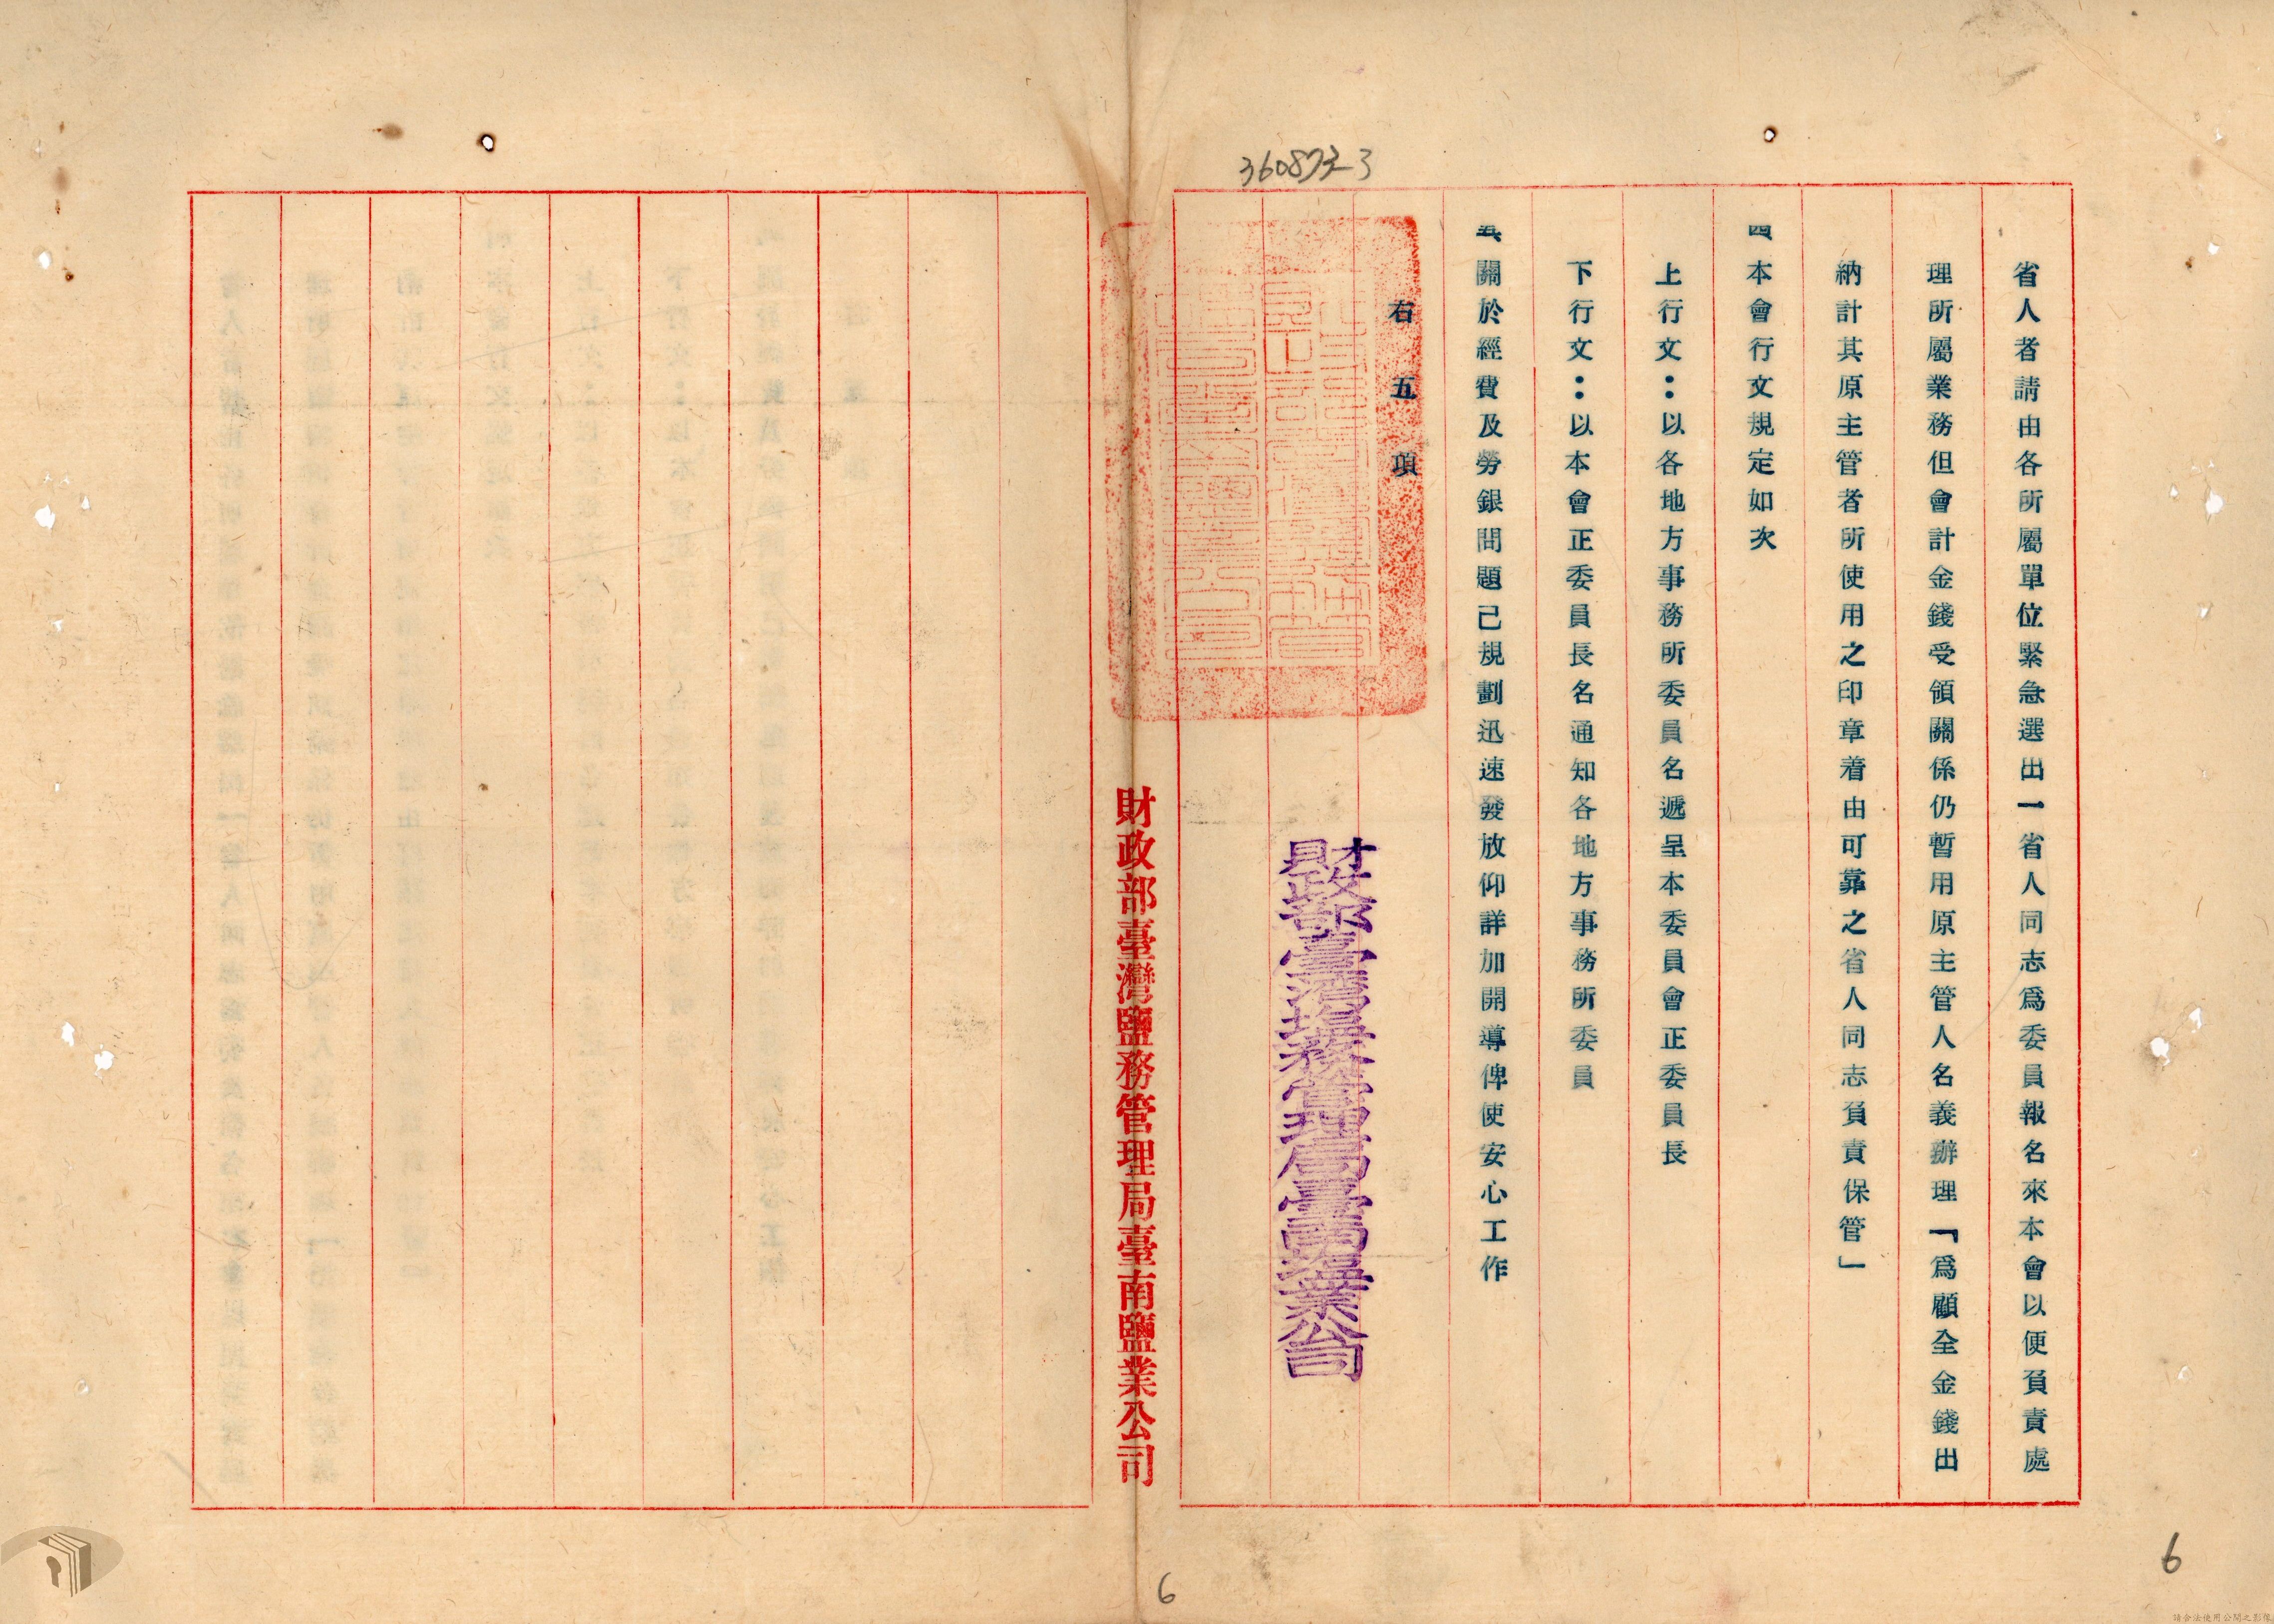 360873-3
省人者請由各所屬單位緊急選出一省人同志爲委員報名來本會以便負責處
理所屬業務但會計金錢受領關係仍暫用原主管人名義辦理「爲顧全金錢出
納計其原主管者所使用之印章着由可靠之省人同志負責保管」
四本會行文規定如次
上行文：以各地方事務所委員名遞呈本委員會正委員長
下行文：以本會正委員長名通知各地方事務所委員
五關於經費及勞銀問題己規劃迅速發放仰詳加開導俾使安心工作
右五項
財政部臺灣塩務管理局臺南塩業公司
財政部臺灣鹽務管理局臺南鹽業公司
6
6
請合法使用公開之影像